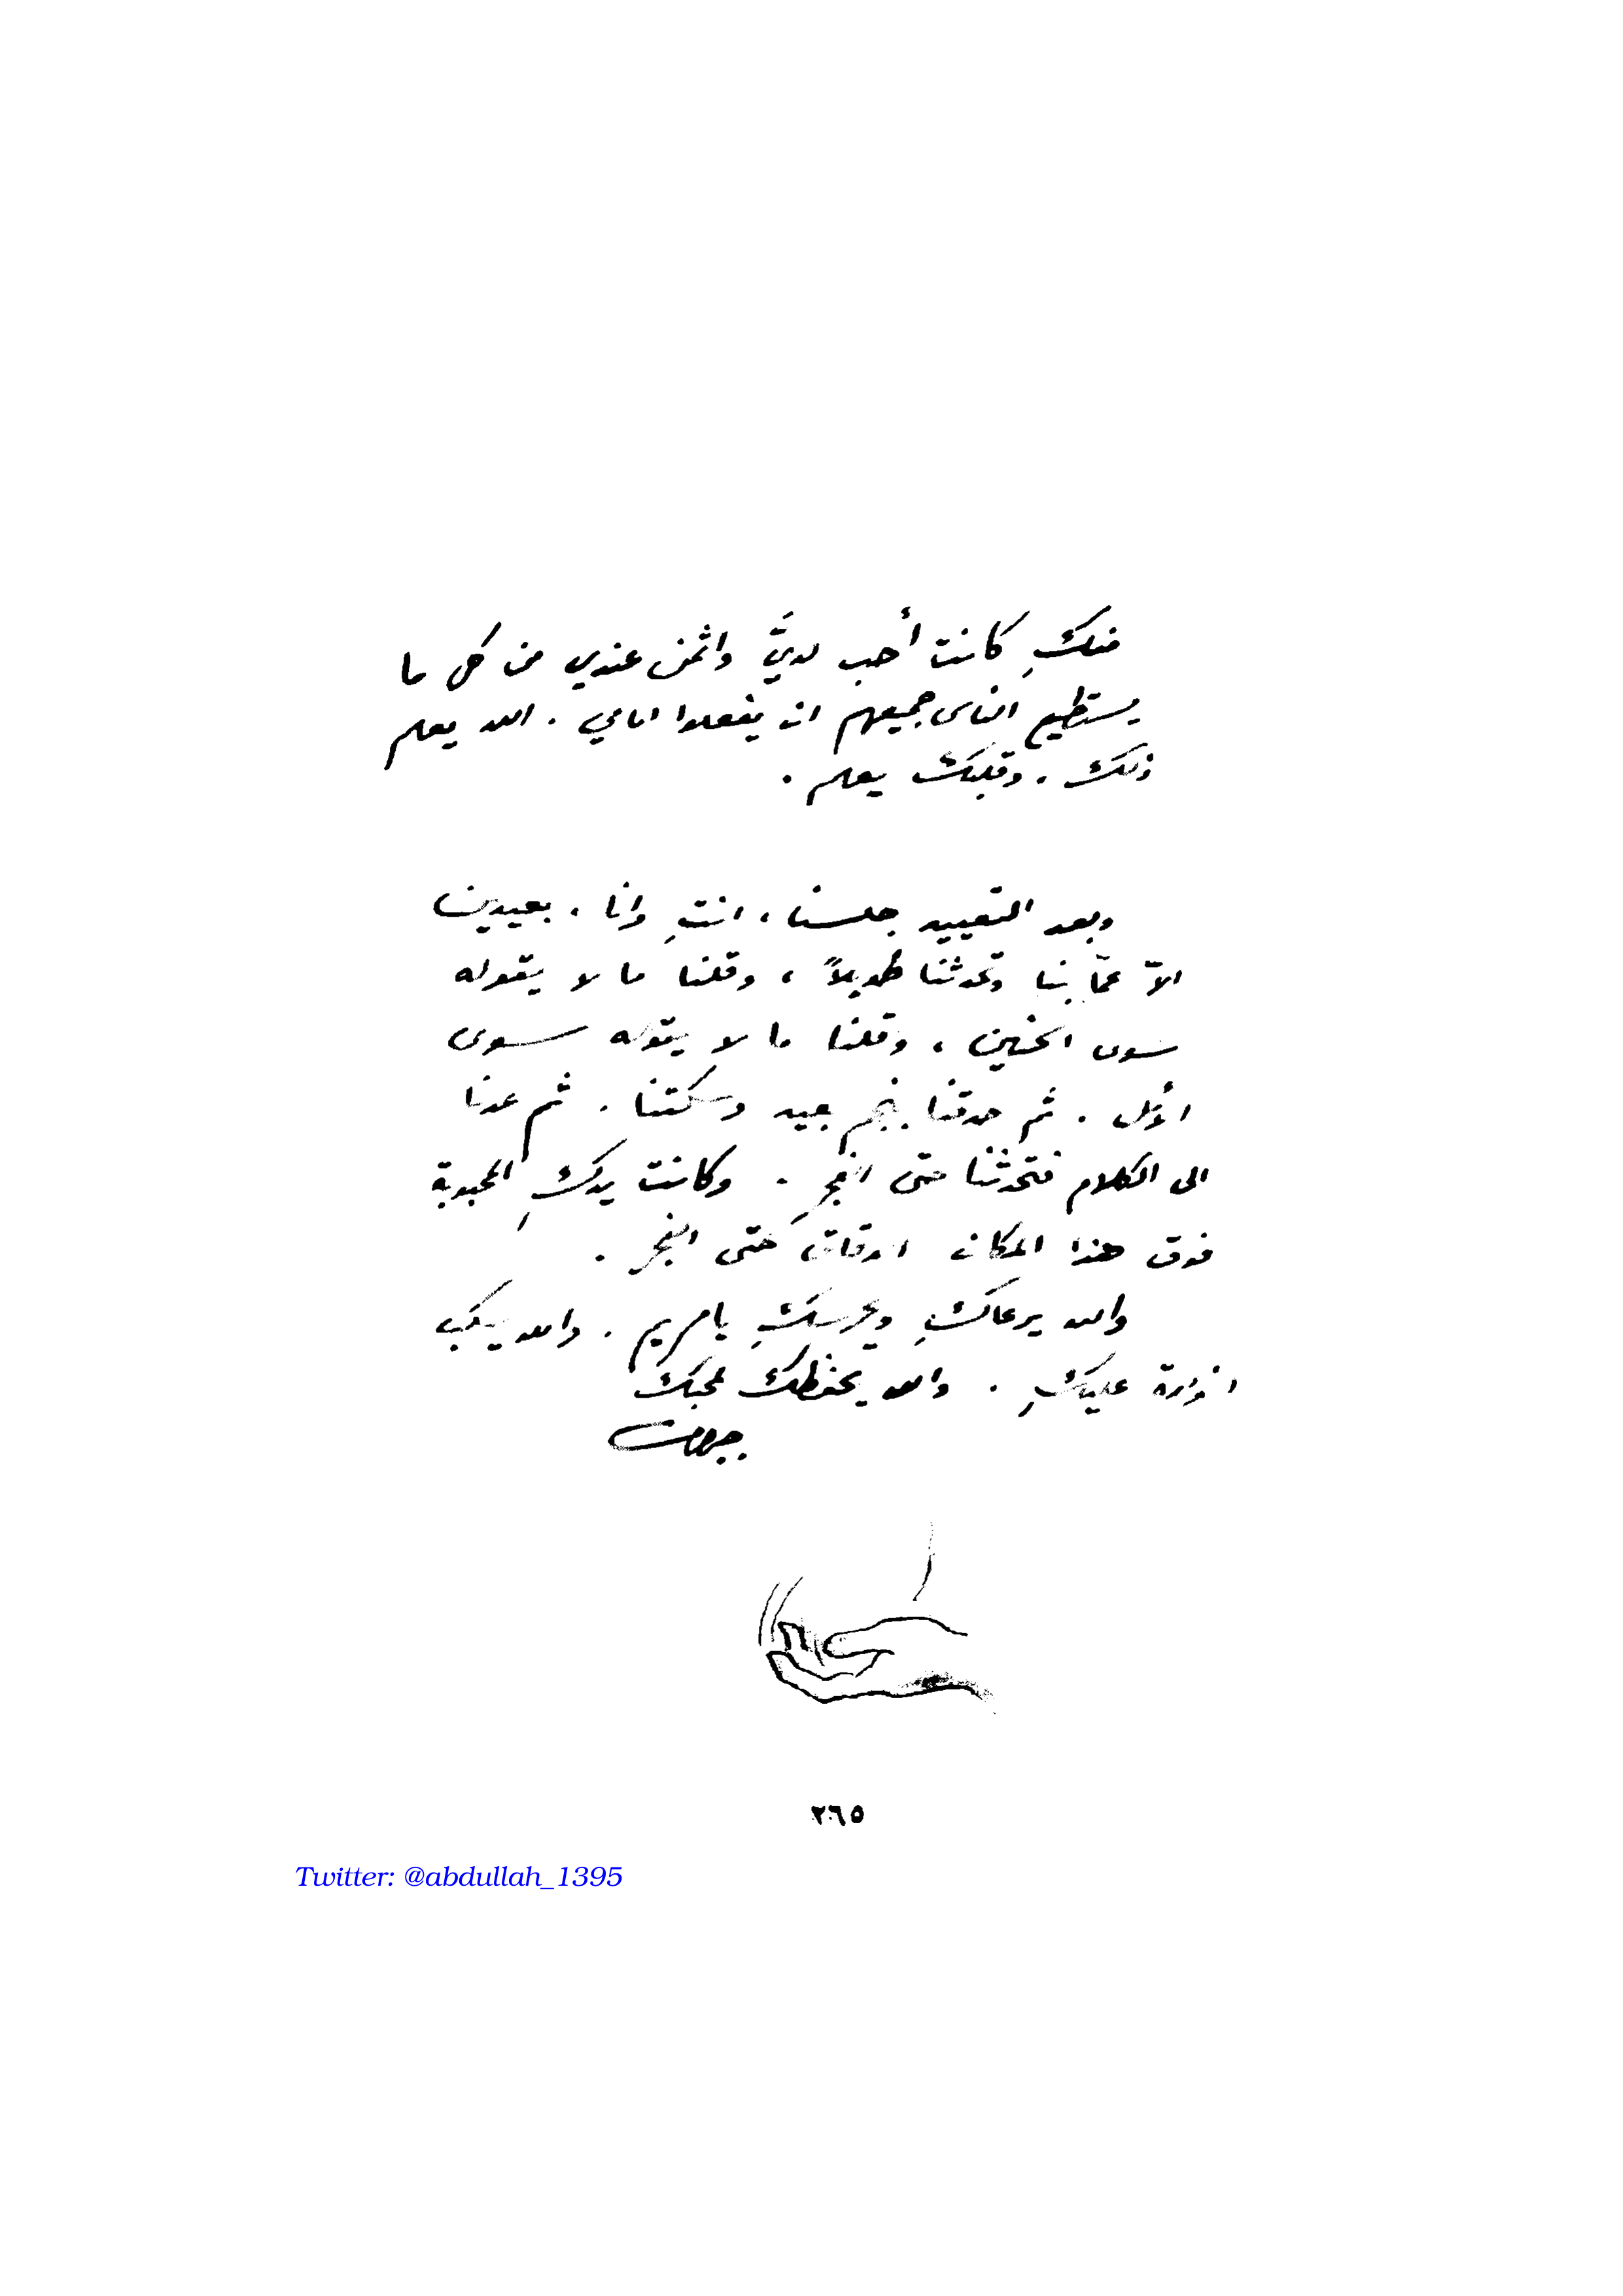 منكِ كانت أحب لديَّ واثمن عندي من كل ما
يستطيع الناس جميعهم ان يفعلوا امامي . الله يعلم
ذلك . وقلبك يعلم .
وبعد التعييد جلسنا ، انتِ وانا ، بعيدين
الاّ عمّا بنا وتحدثنا طويلاً ، وقلنا ما لا يقوله
سوى الحنين ، وقلنا ما لا يقوله سوى
الأمل . ثم حدقنا بنجم بعيد وسكتنا . ثم عدنا
الى الكلام فتحدثنا حتى الفجر . وكانت يدكِ المحبوبة
فوق هذا المكان الدقاق حتى الفجر .
والله يرعاكِ ويحرسكِ يا مريم . والله يسكب
انواره عليكِ . والله يحفظك لمحبك
جبران
٢٦٥
Twitter: @abdullah_1395